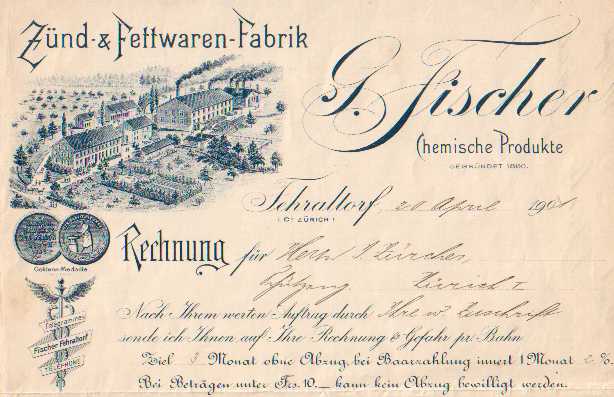 Zünd- & Fettwaren-Fabrik
G. Fischer
Chemische Produkte
GEGRÜNDET 1860.
Fehraltorf, 20 April 1901
(Ct. ZÜRICH)
Goldene Medaille
Rechnung für Herrn J. Zürcher,
Zürich I
Telegramme
Fischer Fehraltorf
TELEPHON
Nach Ihrem werten Auftrag durch Ihre w. Zuschrift
sende ich Ihnen auf Ihre Rechnung & Gefahr pr. Bahn
Ziel 3 Monat ohne Abzug, bei Baarzahlung innert 1 Monat 2 %
Bei Beträgen unter Frs. 10._ kann kein Abzug bewilligt werden.